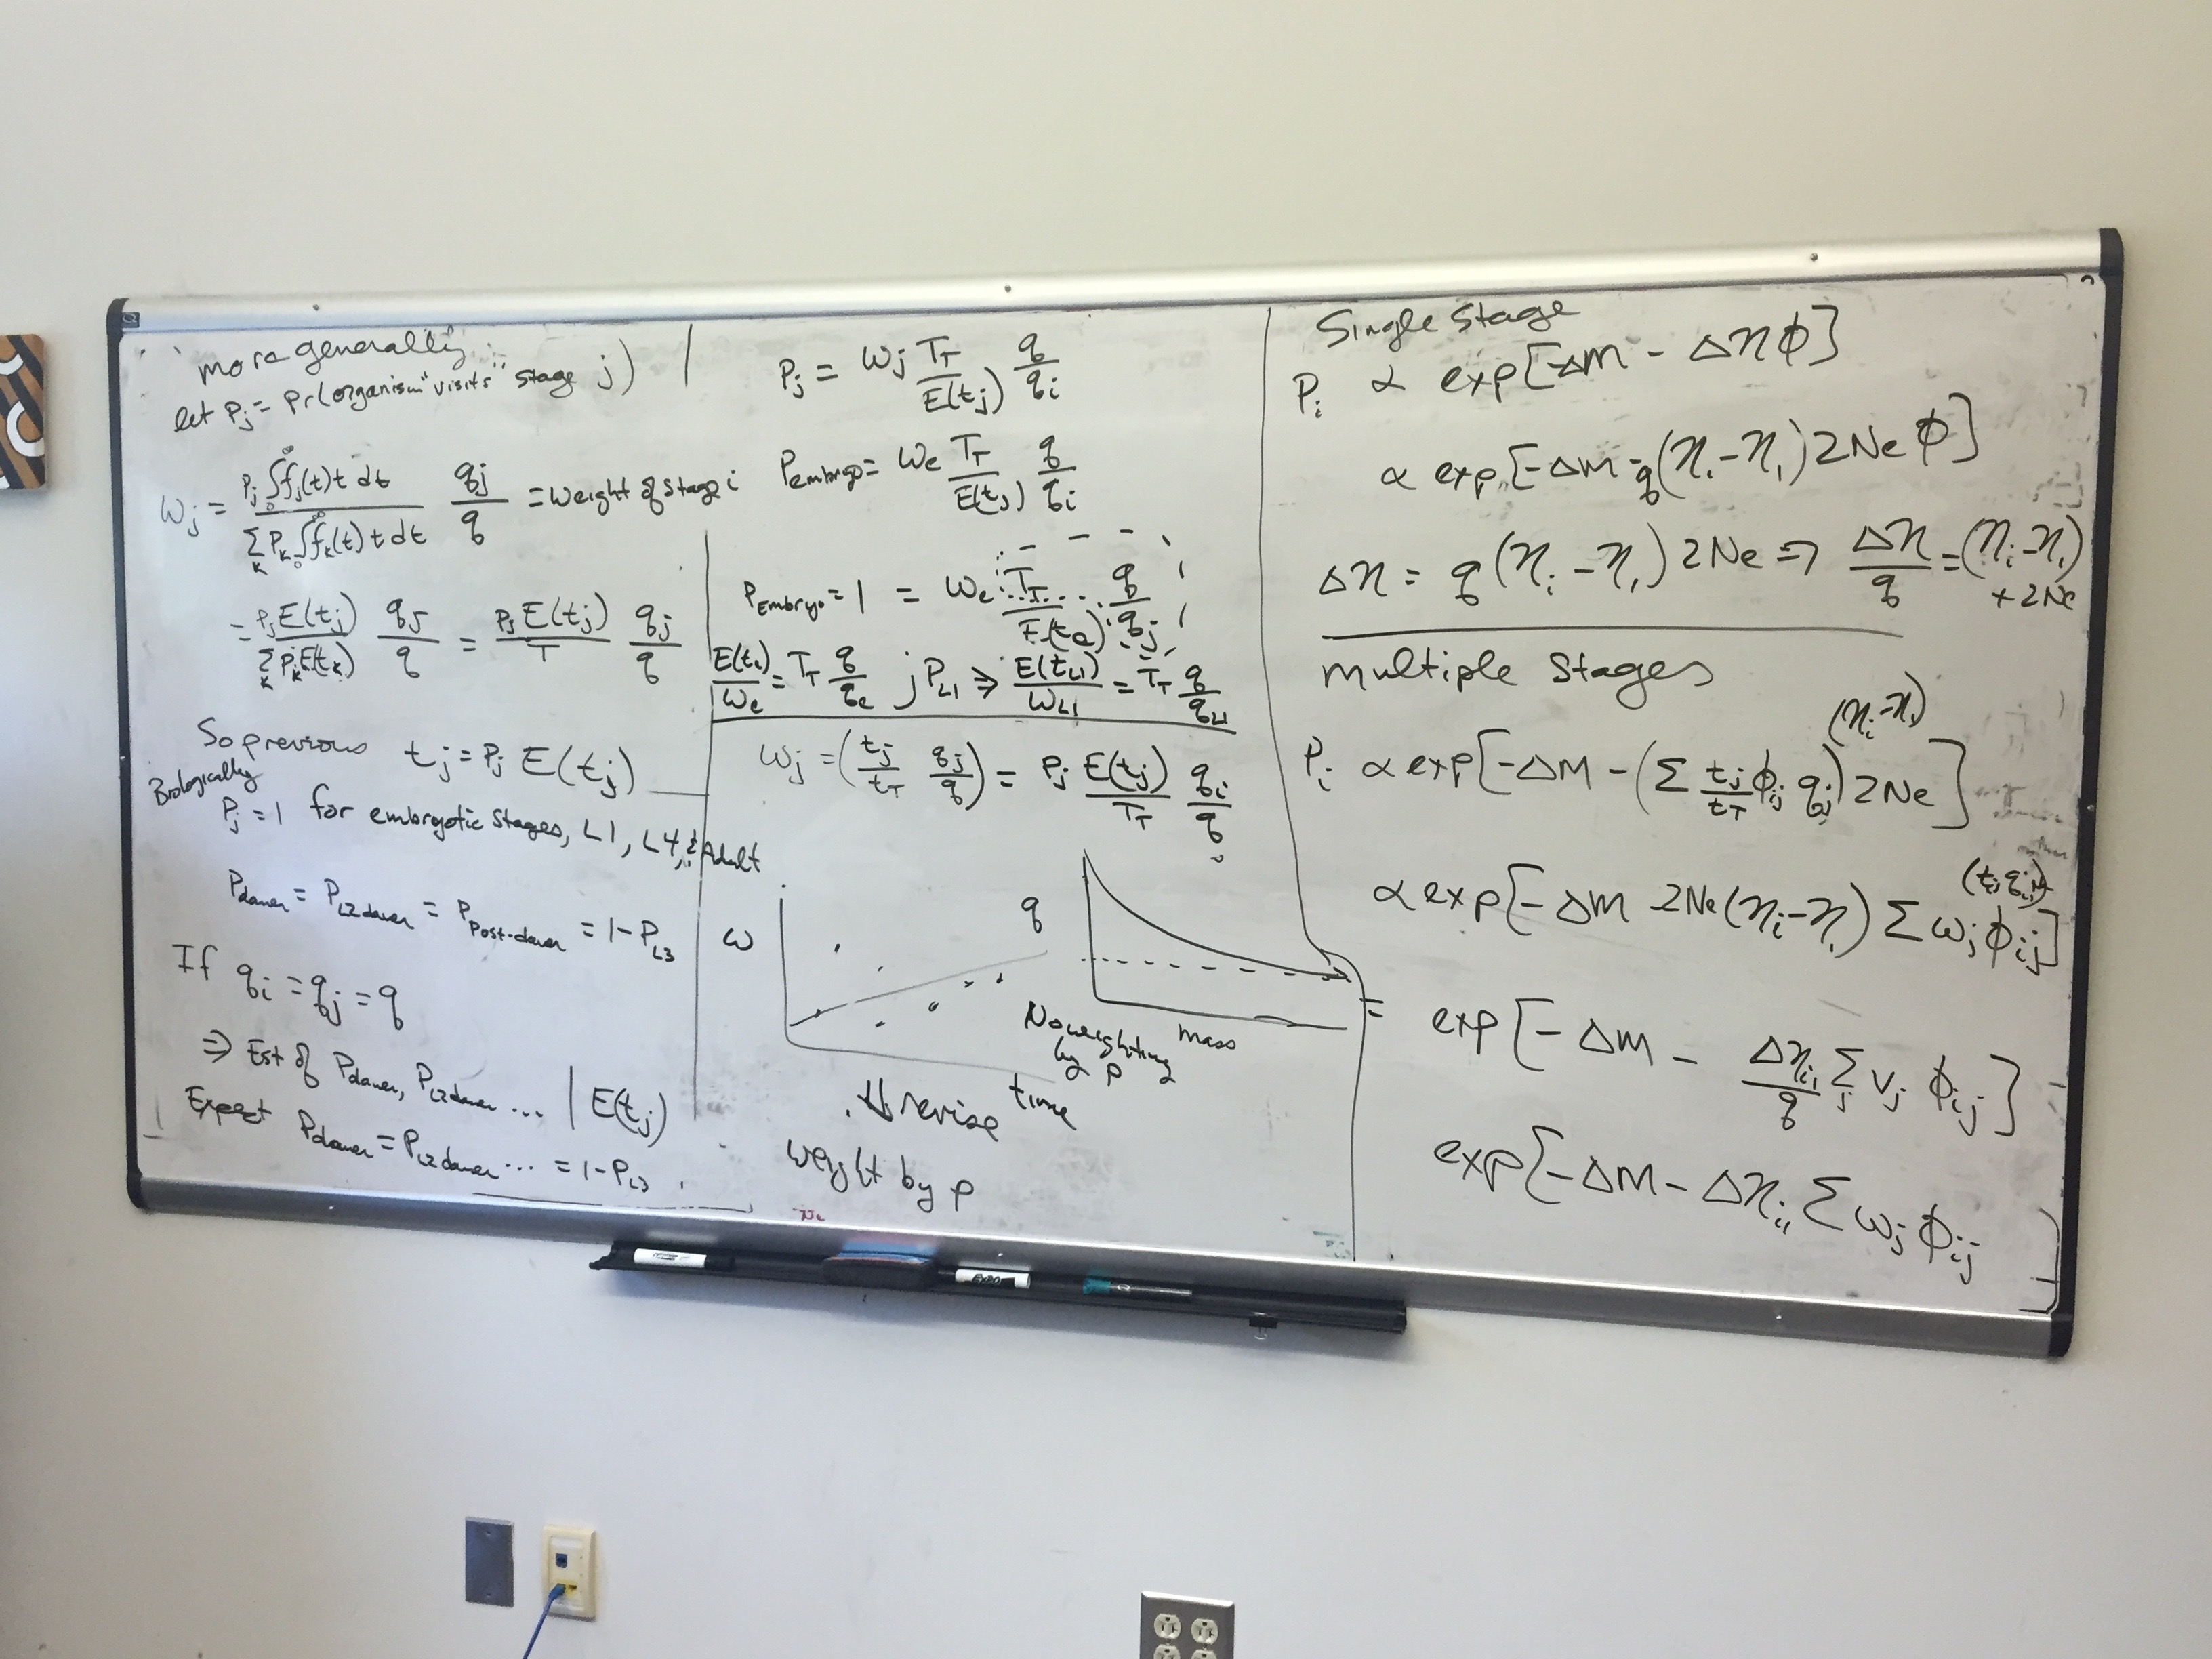 more generally
let Pj = Pr(organism "visits" stage j)
ωj = Pj ∫₀^∞ fj(t) t dt / Σk Pk ∫₀^∞ fk(t) t dt · qj/q = weight of stage i
= Pj E(tj) / Σk Pk E(tk) · qj/q = Pj E(tj) / T · qj/q
So previous tj = Pj E(tj)
Biologically
Pj = 1 for embryotic stages, L1, L4, & Adult
Pdauer = PL2dauer = PPost-dauer = 1-PL3
If qi = qj = q
⇒ Est of Pdauer, PL2dauer ... | E(tj)
Expect Pdauer = PL2dauer ... = 1-PL3
Pj = ωj TT/E(tj) q/qi
Pembryo = ωe TT/E(tj) q/qi
PEmbryo = 1 = ωe TT/E(te) q/qj
E(te)/ωe = TT q/qe ; PL1 ⇒ E(tL1)/ωL1 = TT q/qL1
ωj = (tj/tT qj/q) = Pj E(tj)/TT qi/q
ω
q
No weighting by p
mass
time
⇓ revise
weight by p
Single Stage
Pi ∝ exp[-ΔM - Δηϕ]
∝ exp[-ΔM - q(ηi-η1)2Neϕ]
Δη = q(ηi-η1)2Ne ⇒ Δη/q = (ηi-η1)
x 2Ne
multiple Stages
(ηi-η1)
Pi ∝ exp[-ΔM - (Σ tj/tT ϕij qj)2Ne]
∝ exp[-ΔM 2Ne(ηi-η1) Σ ωj ϕij]
= exp[-ΔM - Δηi1/q Σj Vj ϕij]
exp[-ΔM - Δηi1 Σ ωj ϕij]
Ne
EXPO